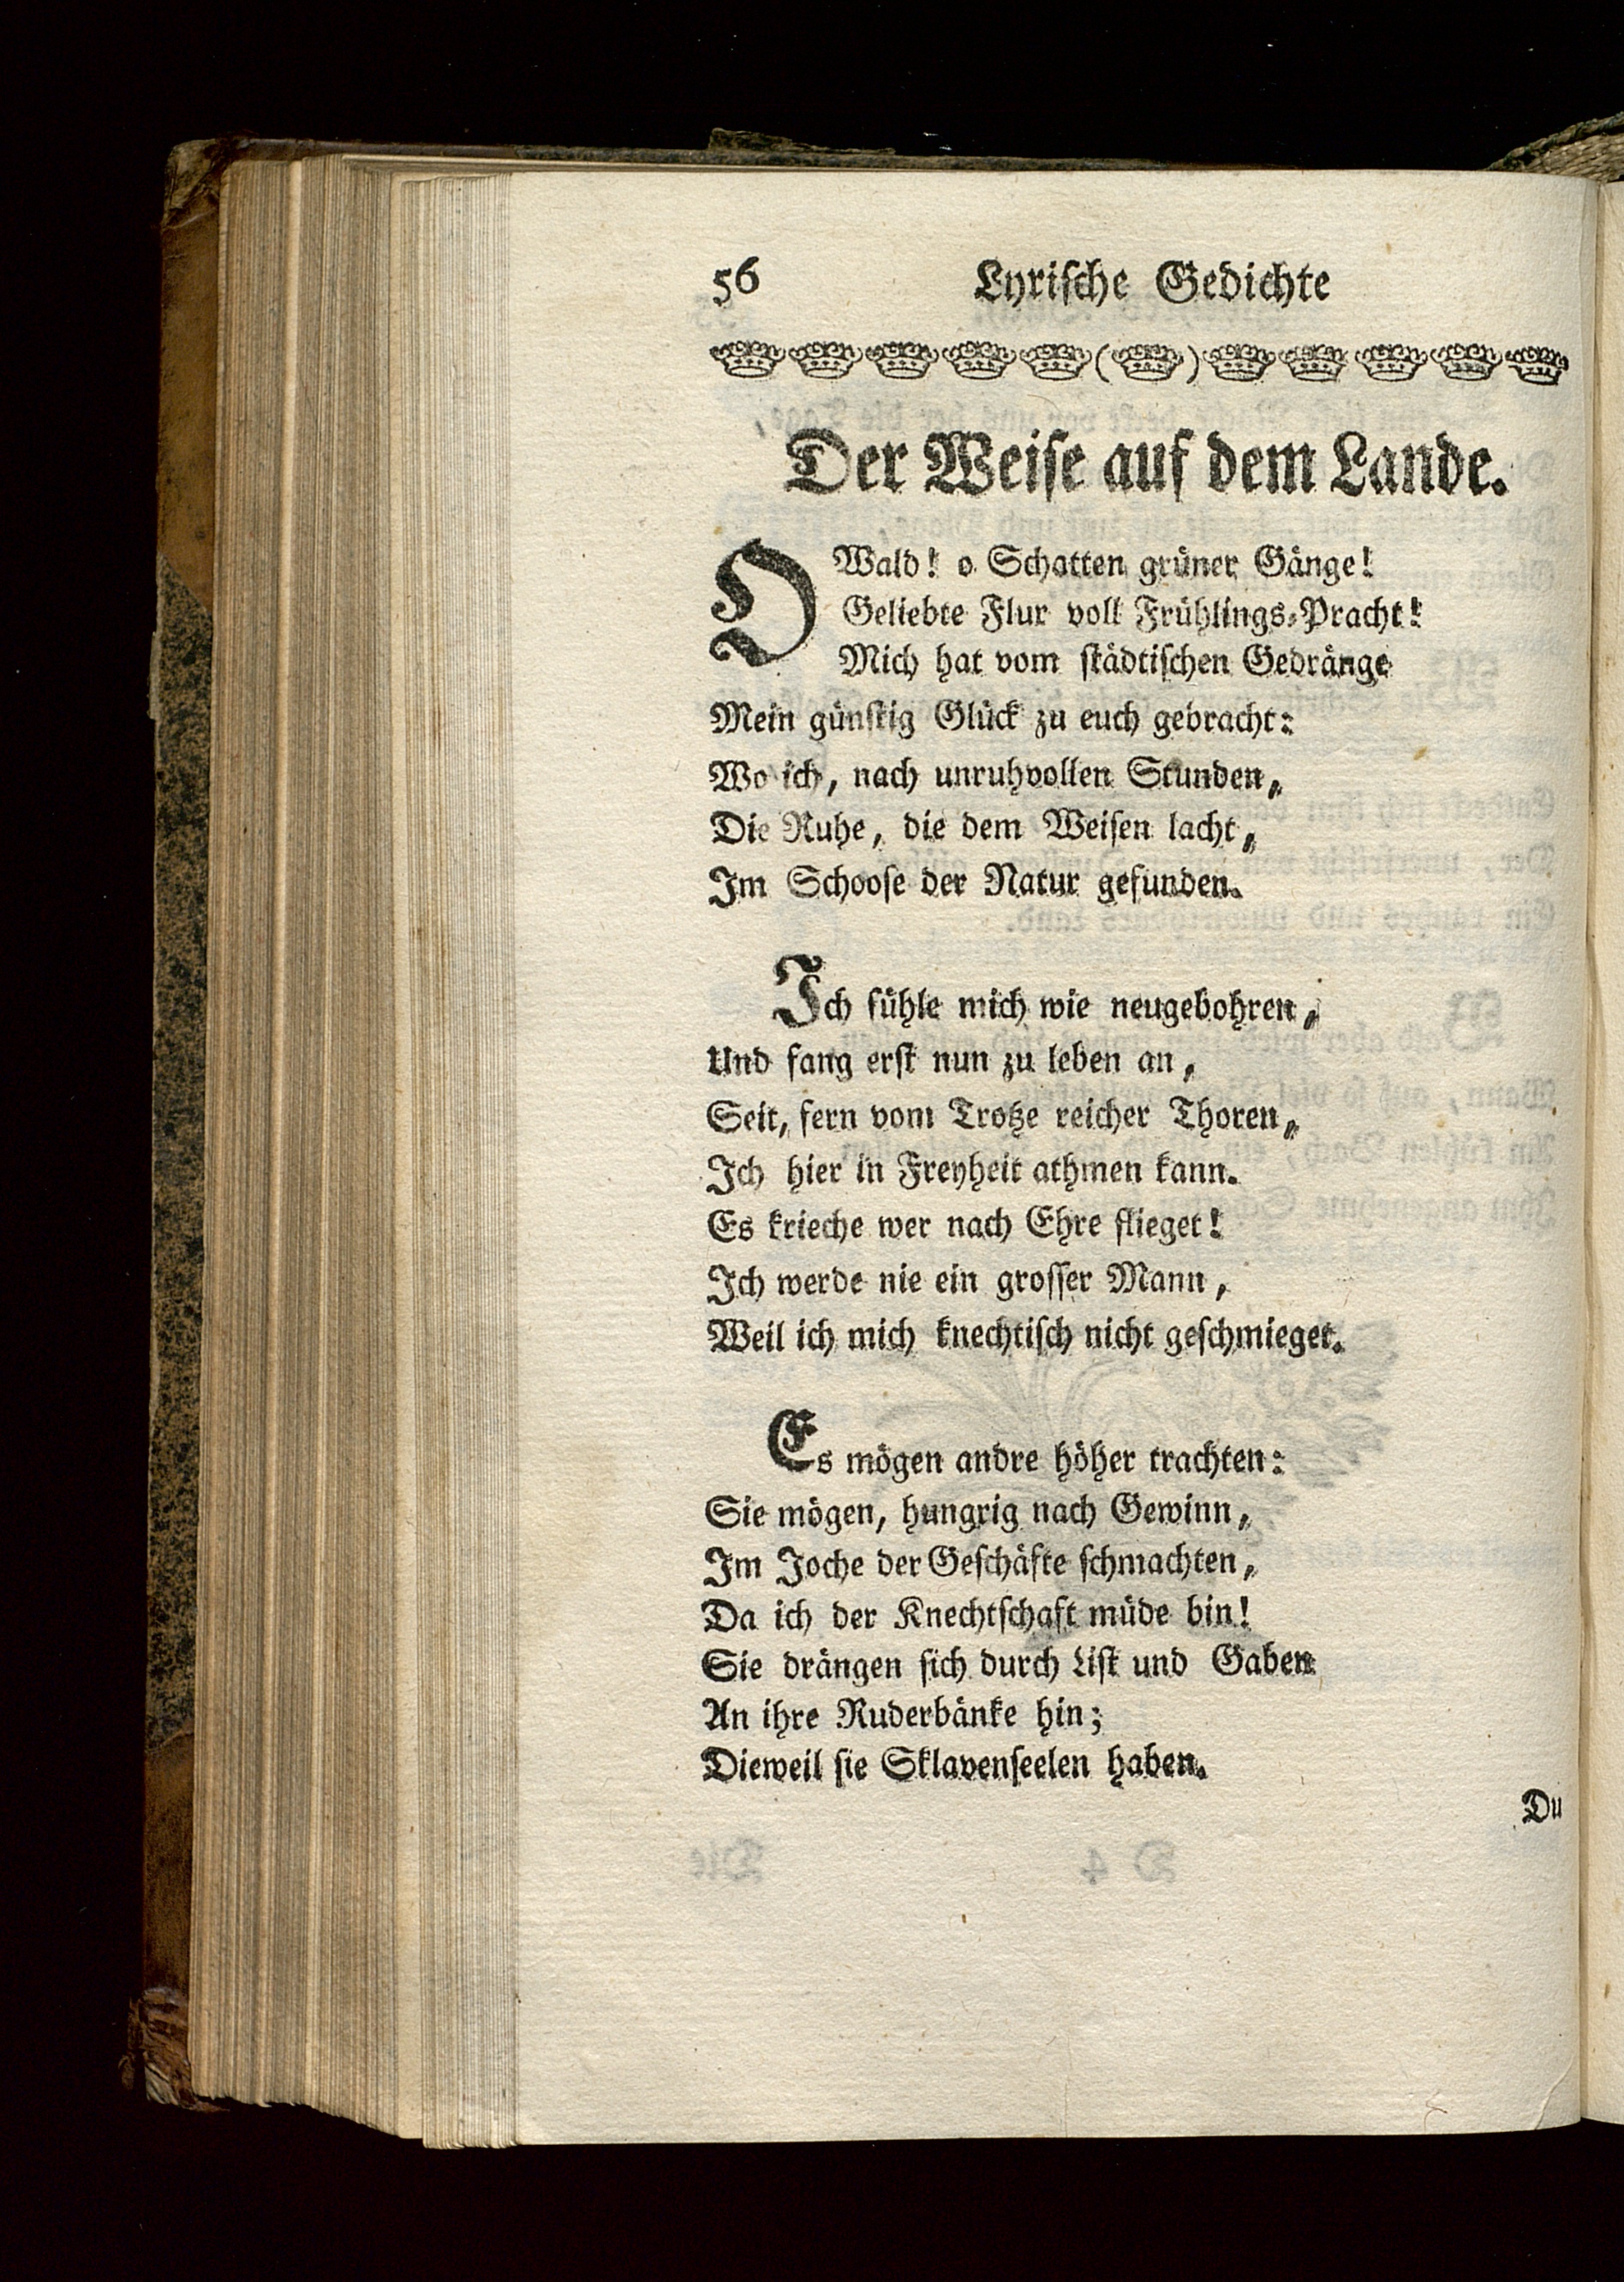 56 Lyrische Gedichte
Der Weise auf dem Lande.
O Wald! o Schatten grüner Gänge!
Geliebte Flur voll Frühlings-Pracht!
Mich hat vom städtischen Gedränge
Mein günstig Glück zu euch gebracht:
Wo ich, nach unruhvollen Stunden,
Die Ruhe, die dem Weisen lacht,
Im Schoose der Natur gefunden.
Ich fühle mich wie neugebohren,
Und fang erst nun zu leben an,
Seit, fern vom Trotze reicher Thoren,
Ich hier in Freyheit athmen kann.
Es krieche wer nach Ehre flieget!
Ich werde nie ein grosser Mann,
Weil ich mich knechtisch nicht geschmieget.
Es mögen andre höher trachten:
Sie mögen, hungrig nach Gewinn,
Im Joche der Geschäfte schmachten,
Da ich der Knechtschaft müde bin!
Sie drängen sich durch List und Gaben
An ihre Ruderbänke hin;
Dieweil sie Sklavenseelen haben.
Du